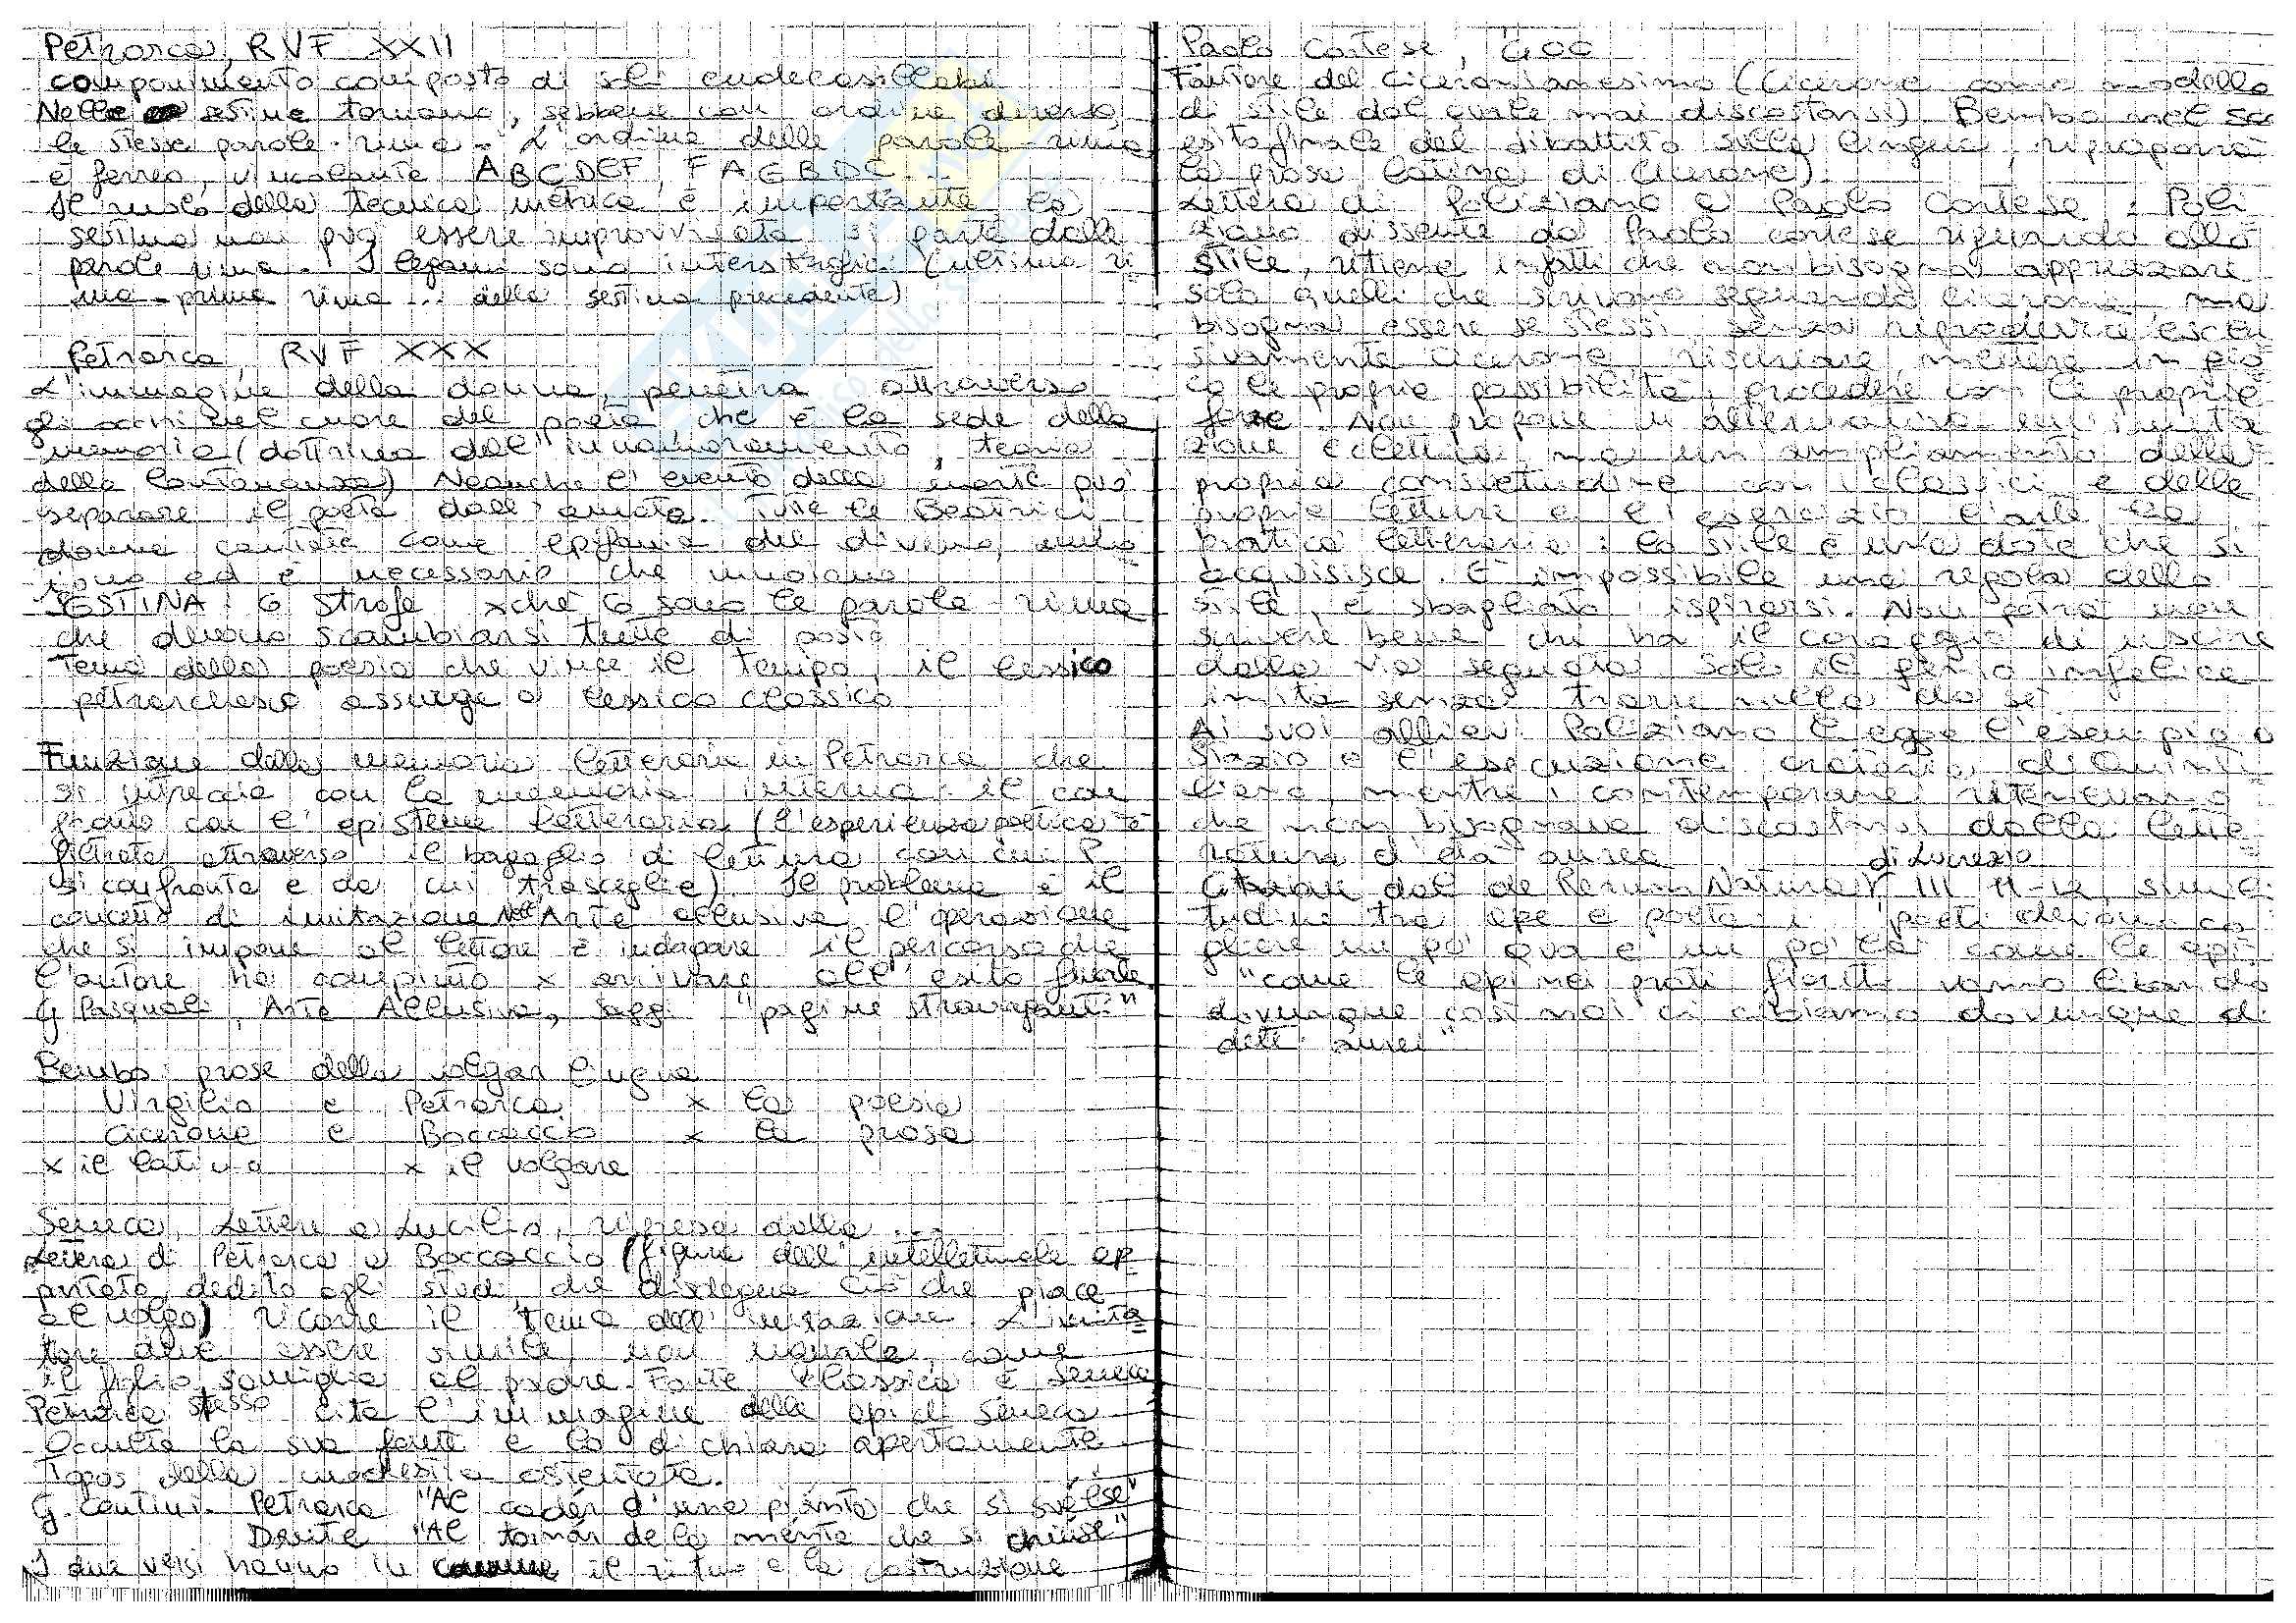 Petrarca, RVF XXII
componimento composto di soli endecasillabi
Nelle sestine tornano, sebbene con ordine diverso,
le stesse parole-rima. L'ordine delle parole-rima
è ferreo, vincolante ABCDEF, FAGBDC...
Il ruolo della tecnica metrica è importante la
sestina non può essere improvvisata, si parte dalle
parole rima. I legami sono interstrofici (ultima ri
ma-prima rima... della sestina precedente)
Petrarca, RVF XXX
L'immagine della donna, penetra attraverso
gli occhi nel cuore del poeta che è la sede della
memoria (dottrina dell'innamoramento, teoria
della lontananza) Neanche l'evento della morte può
separare il poeta dall'amata. Tutte le Beatrici,
donne cantate come epifania del divino, muo
iono ed è necessario che muoiano
SESTINA: 6 strofe xché 6 sono le parole-rima
che devono scambiarsi tutte di posto
Tema della poesia che vince il tempo, il lessico
petrarchesco assurge a lessico classico
Funzione della memoria letteraria in Petrarca che
si intreccia con la memoria interna: il con
fronto con l'episteme letteraria (l'esperienza poetica è
filtrata attraverso il bagaglio di lettura con cui P.
si confronta e da cui trasceglie). Il problema è il
concetto di imitazione. Nell'Arte allusiva l'operazione
che si impone al lettore è indagare il percorso che
l'autore ha compiuto x arrivare all'esito finale
G Pasquali, Arte Allusiva, saggi "pagine stravaganti"
Bembo: prose della volgar lingua
Virgilio e Petrarca x la poesia
Cicerone e Boccaccio x la prosa
x il latino x il volgare
Seneca, Lettere a Lucilio, ripresa dalla ...
Lettera di Petrarca a Boccaccio (figura dell'intellettuale ap
partato, dedito agli studi, che disdegna ciò che piace
al volgo) ricorre il tema dell'imitazione. L'imita
tore deve essere simile, non uguale, come
il figlio somiglia al padre. Fonte classica è Seneca
Petrarca stesso cita l'immagine delle api di Seneca
Occulta la sua fonte e la dichiara apertamente
Topos della modestia ostentata.
G. Contini. Petrarca "Al cadér d'una piánta che si svélse"
Dante "Al tornár de la ménte che si chiúse"
I due versi hanno in comune il ritmo e la costruzione
Paolo Cortese, 400
Fautore del Ciceronianesimo (Cicerone come modello
di stile dal quale mai discostarsi) Bembo nel
esito finale del dibattito sulla lingua, riproporrà
la prosa latina di Cicerone).
Lettera di Poliziano a Paolo Cortese: Poli
ziano dissente da Paolo Cortese riguardo allo
stile, ritiene infatti che non bisogna apprezzare
solo quelli che scrivono seguendo Cicerone, ma
bisogna essere se stessi, senza riprodurre esclu
sivamente Cicerone, rischiare, mettere in gio
co le proprie possibilità, procedere con le proprie
forze. Non propone in alternativa un'imita
zione eclettica, ma un ampliamento della
propria consuetudine con i classici e delle
proprie letture e l'esercizio, l'arte, la
pratica letteraria: lo stile è una dote che si
acquisisce. È impossibile una regola dello
stile, è sbagliato ispirarsi. Non potrà non
scrivere bene chi ha il coraggio di uscire
dalla via segnata. Solo il genio infelice
imita senza trarre nulla da sé.
Ai suoi allievi Poliziano legge l'esempio di
Stazio e l'esecuzione oratoria di Quinti
liano, mentre i contemporanei ritenevano
che non bisognava discostarsi dalla lette
ratura d'età aurea
Citazione dal de Rerum Natura di Lucrezio III 11-12, simili
tudine tra ape e poeta: i poeti devono co
gliere un po' qua e un po' là come le api
"come le api nei prati fioriti vanno libando
dovunque così noi ci cibiamo dovunque di
detti aurei"